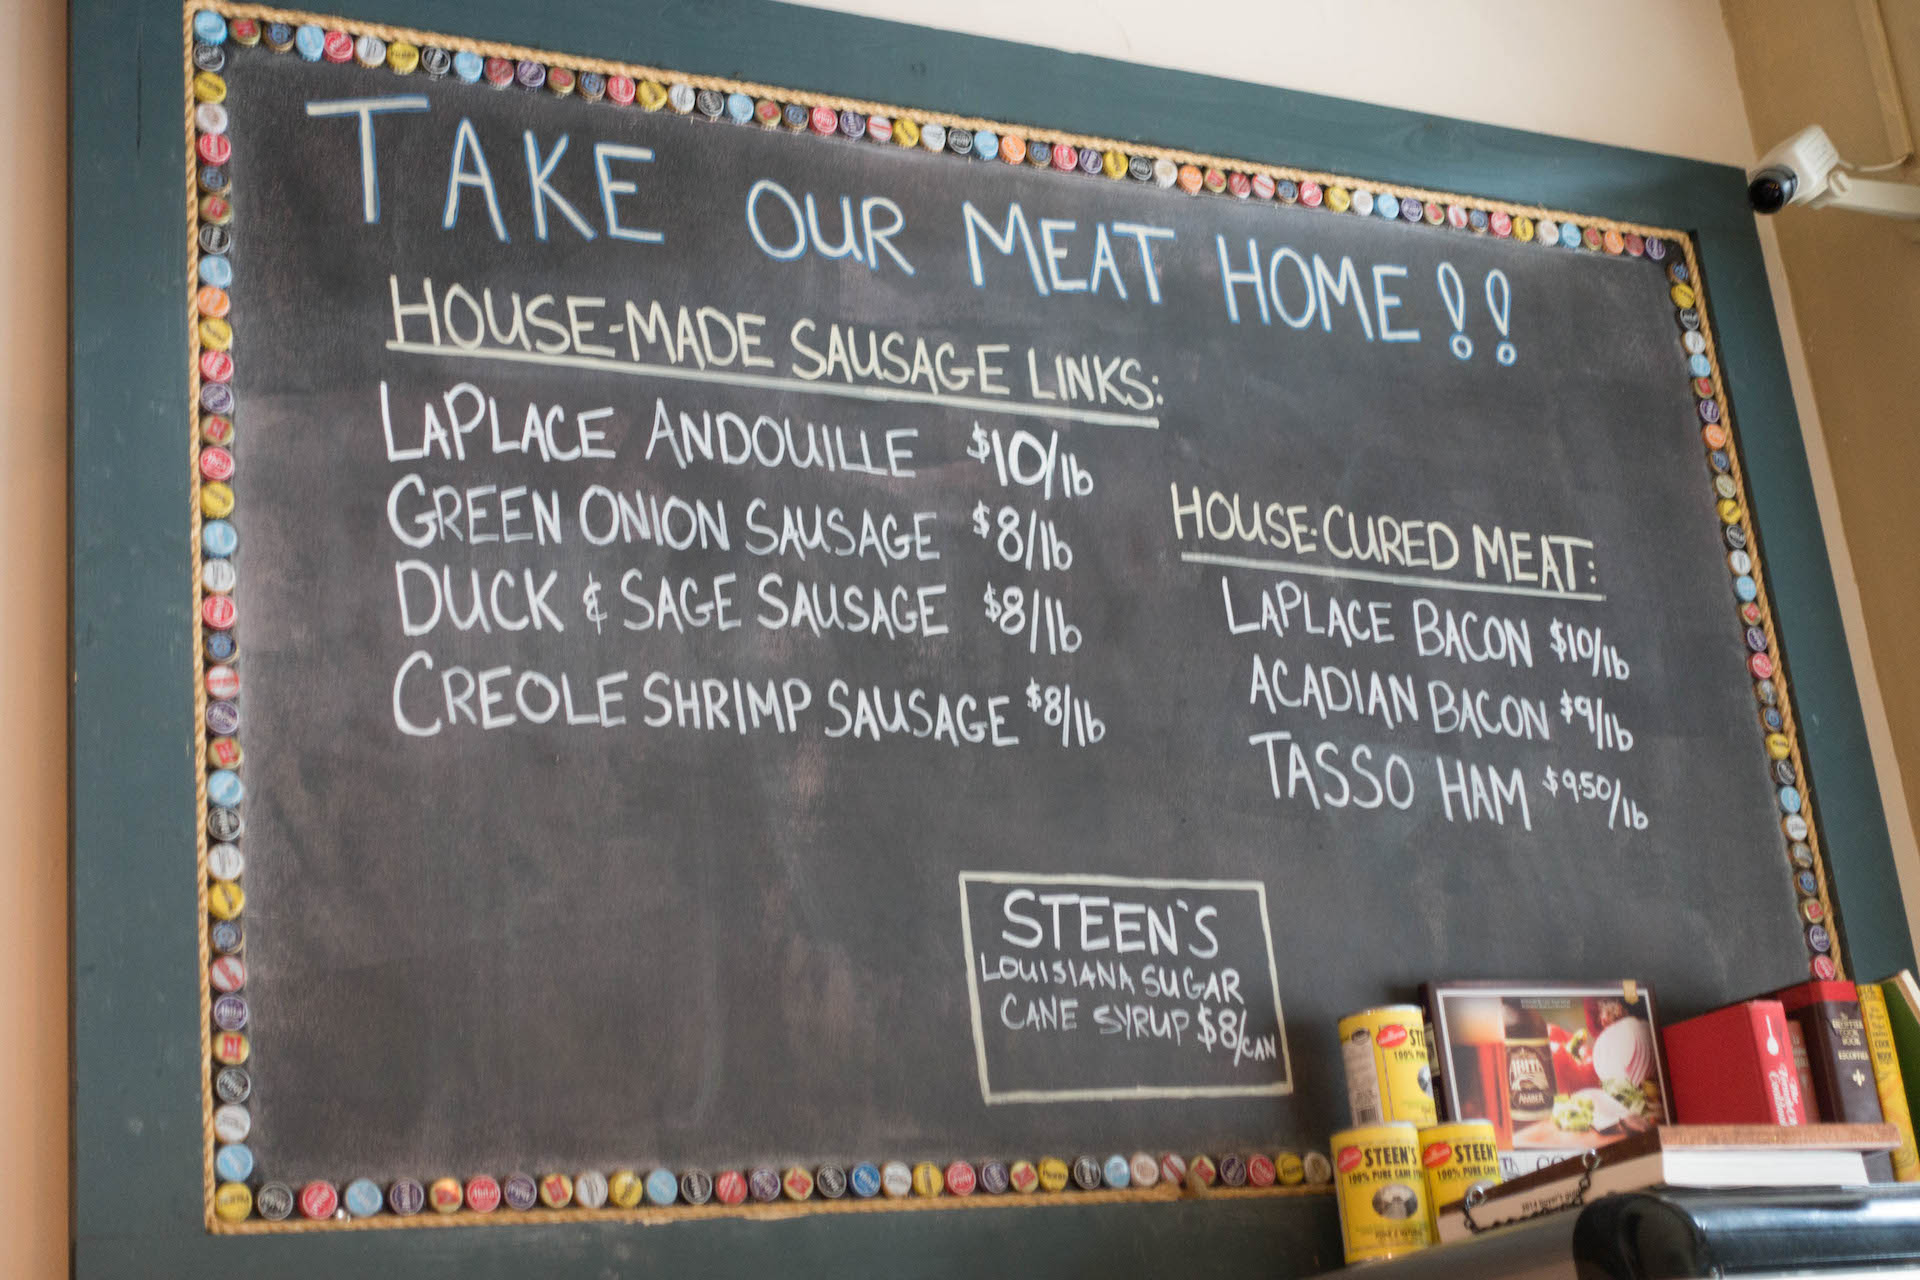 TAKE OUR MEAT HOME!!
HOUSE-MADE SAUSAGE LINKS:
LAPLACE ANDOUILLE $10/lb
GREEN ONION SAUSAGE $8/lb
DUCK & SAGE SAUSAGE $8/lb
CREOLE SHRIMP SAUSAGE $8/lb
HOUSE-CURED MEAT:
LAPLACE BACON $10/lb
ACADIAN BACON $9/lb
TASSO HAM $9.50/lb
STEEN'S
LOUISIANA SUGAR
CANE SYRUP $8/CAN
ABITA
AMBER
STEEN'S
100% PURE CANE
STEEN'S
100% PURE CANE